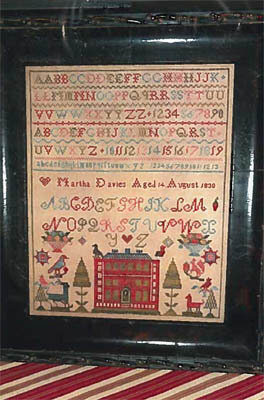 AABBCCDDEEFFGGHHIIJJK
LLMMNNOOPPQQRRSSTTUU
VVWWXXYYZZ 1234567890
ABCDEFGHIJKLMNOPQRST
UVWXYZ 1011 12 13 14 15 16 17 18 19
Martha Davies Aged 14 August 1830
ABCDEFGHIJKLM
NOPQRSTUVWX
YZ